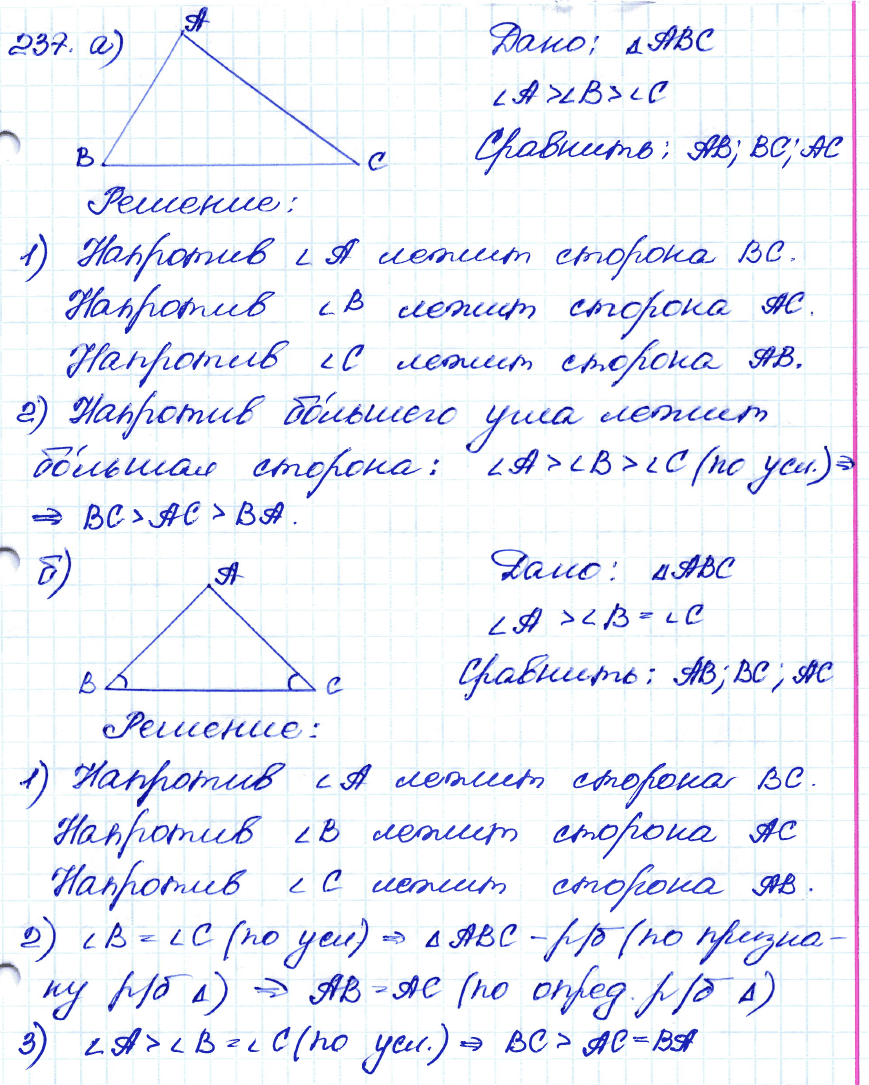 237. а)
A
B
C
Дано: △ABC
∠A>∠B>∠C
Сравнить: AB; BC; AC
Решение:
1) Напротив ∠A лежит сторона BC.
Напротив ∠B лежит сторона AC.
Напротив ∠C лежит сторона AB.
2) Напротив бо́льшего угла лежит
бо́льшая сторона: ∠A>∠B>∠C (по усл.) ⇒
⇒ BC>AC>BA.
б)
A
B
C
Дано: △ABC
∠A >∠B = ∠C
Сравнить: AB; BC; AC
Решение:
1) Напротив ∠A лежит сторона BC.
Напротив ∠B лежит сторона AC
Напротив ∠C лежит сторона AB.
2) ∠B = ∠C (по усл) ⇒ △ABC – р/б (по призна-
ку р/б △) ⇒ AB=AC (по опред. р/б △)
3) ∠A>∠B=∠C (по усл.) ⇒ BC> AC=BA